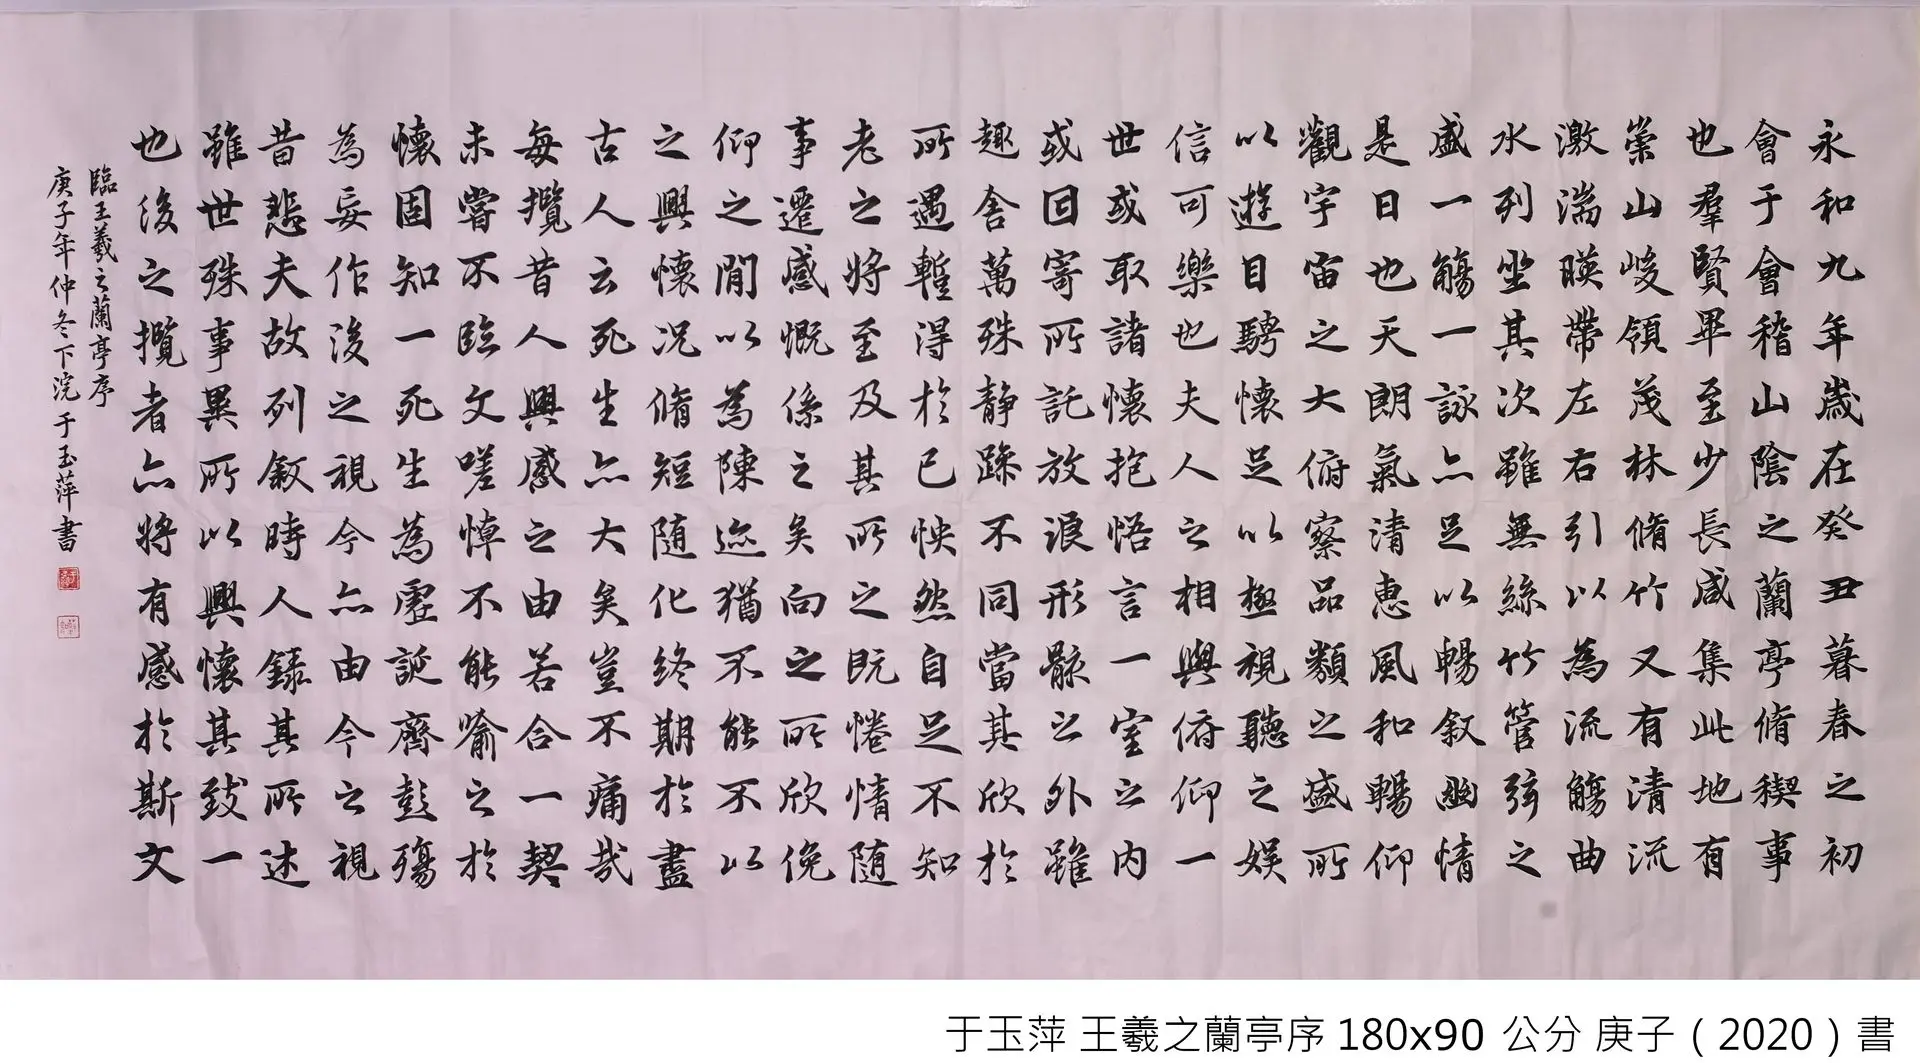 永和九年歲在癸丑暮春之初
會于會稽山陰之蘭亭脩稧事
也羣賢畢至少長咸集此地有
崇山峻領茂林脩竹又有清流
激湍暎帶左右引以為流觴曲
水列坐其次雖無絲竹管弦之
盛一觴一詠亦足以暢敘幽情
是日也天朗氣清惠風和暢仰
觀宇宙之大俯察品類之盛所
以遊目騁懷足以極視聽之娛
信可樂也夫人之相與俯仰一
世或取諸懷抱悟言一室之內
或因寄所託放浪形骸之外雖
趣舍萬殊靜躁不同當其欣於
所遇蹔得於己怏然自足不知
老之將至及其所之既惓情隨
事遷感慨係之矣向之所欣俛
仰之閒以為陳迹猶不能不以
之興懷況脩短隨化終期於盡
古人云死生亦大矣豈不痛哉
每攬昔人興感之由若合一契
未嘗不臨文嗟悼不能喻之於
懷固知一死生為虛誕齊彭殤
為妄作後之視今亦由今之視
昔悲夫故列敘時人錄其所述
雖世殊事異所以興懷其致一
也後之攬者亦將有感於斯文
臨王羲之蘭亭序
庚子年仲冬下浣于玉萍書
于玉萍 王羲之蘭亭序 180x90 公分 庚子（2020）書